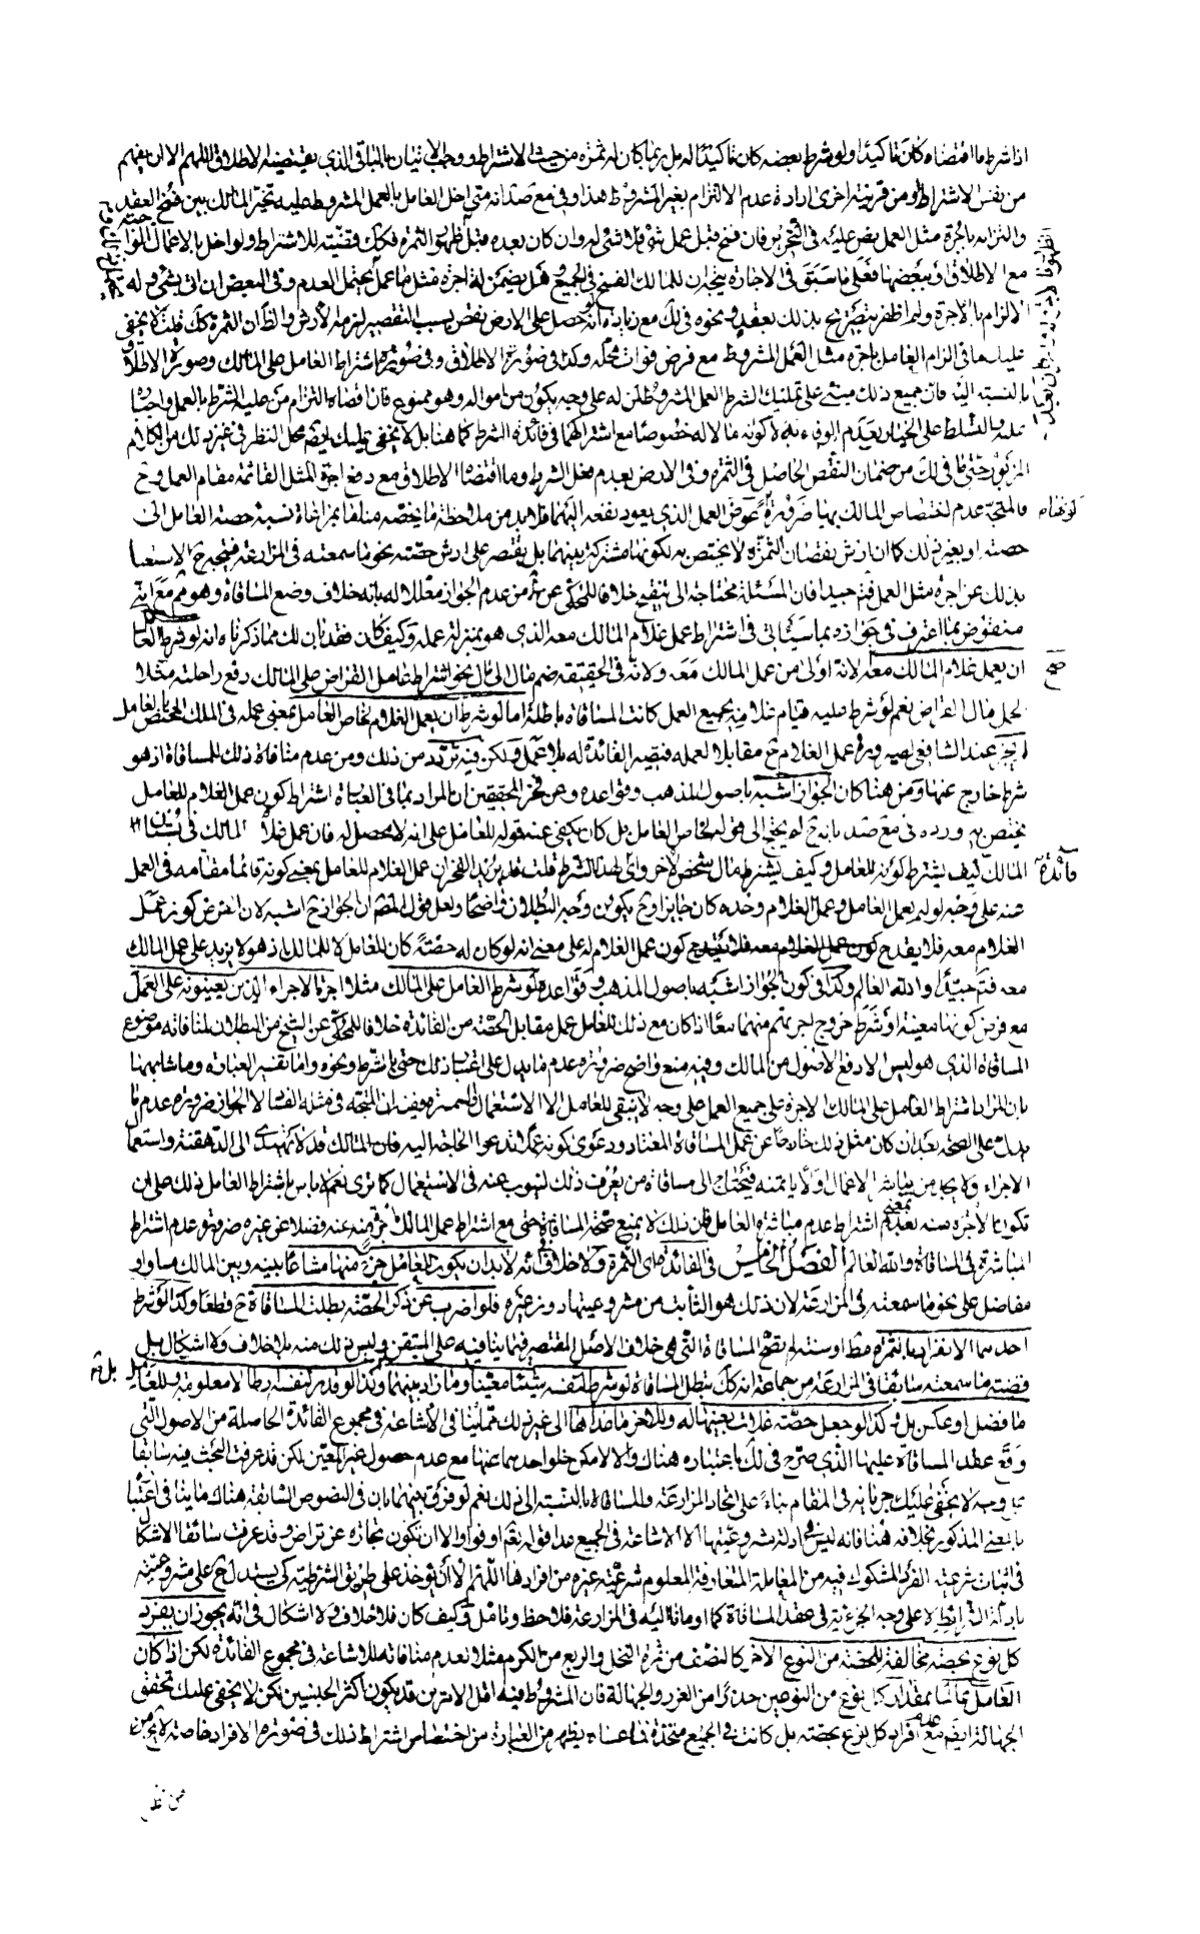 اذا شرط ما اقتضاه كان تاكيدا ولو شرط بعضه كان تاكيدا له بل ربما كان له ثمرة من حيث الاشتراط ووجب الاتيان بالباقى الذى يقتضيه الاطلاق اللهم الا ان يفهم
من نفس الاشتراط او من قرينة اخرى ارادة عدم الالتزام بغير المشروط هذا وفى مع صد انه متى اخل العامل بالعمل المشروط عليه تخير المالك بين فسخ العقد
والزامه باجرة مثل العمل نص عليه فى التحرير فان فسخ قبل عمل شئ فلا شئ له وان كان بعده قبل ظهور الثمرة فكك قضية للاشتراط ولو اخل بالاعمال
مع الاطلاق او ببعضها فعلى ما سبق فى الاجارة ينجبر للمالك الفسخ فى الجميع وهل يضمن له اجرة مثل ما عمل يحتمل العدم وفى البعض ان اتى بشئ وله
الالزام بالاجرة ولم اظفر بتصريح بذلك بعقد ونحوه فى لك مع زيادة انه حصل على الارض نقص بسبب التقصير لزمه الارش والظ ان الثمرة كك قلت لا يخفى
عليك ما فى الزام العامل باجرة مثل العمل المشروط مع فرض فوات محله وكذا فى صورة الاطلاق وفى صورة اشتراط العامل على المالك وصورة الاطلاق
بالنسبة اليه فان جميع ذلك مبنى على تمليك الشرط العمل المشروط لمن له على وجه يكون من امواله وهو ممنوع فان اقصاه التزام من عليه الشرط بالعمل واجباره
عليه والتسلط على الخيار بعدم الوفاء به لا كونه مالا له خصوصا مع اشتراكهما فى فائدة الشرط كما هنا بل لا يخفى عليك ايضا محل النظر فى غير ذلك من الكلام
المزبور حتى ما فى لك من ضمان النقص الحاصل فى الثمرة وفى الارض بعدم فعل الشرط وما اقتضاه الاطلاق مع دفع اجرة المثل القائمة مقام العمل وح
فالمتجه عدم اختصاص المالك بها ضرورة عوض العمل الذى يعود نفعه اليهما فلا بد من ملاحظة ما يخصه منها بمراعاة نسبة حصة العامل الى
حصته او بغير ذلك كما ان ارش نقصان الثمرة لا يختص به لكونها مشتركة بينهما بل يقتصر على ارش حصته نحو ما سمعته فى المزارعة فيتجه ح الاستغناء
بذلك عن اجرة مثل العمل فتم جيدا فان المسئلة محتاجة الى تنقيح خلافا للمحكى عن من عدم الجواز معللا له بانه خلاف وضع المساقاة وهو مع انه
منقوض بما اعترف فى جوازه بما سياتى فى اشتراط عمل غلام المالك معه الذى هو بمنزلة عمله وكيف كان فقد بان لك مما ذكرناه انه لو شرط العامل
ان يعمل غلام المالك معه لانه اولى من عمل المالك معه ولانه فى الحقيقة ضم مال الى مال نحو اشتراط عامل القراض على المالك دفع راحلته مثلا
لحمل مال القراض نعم لو شرط عليه قيام غلامه بجميع العمل كانت المساقاة باطلة اما لو شرط ان يعمل الغلام لخاص العامل بمعنى عمله فى الملك المختص بالعامل
لم يجز عند الشافعى لصيرورة عمل الغلام ح مقابلا لعمله فتصير الفائدة له بلا عمل ولكن فيه تردد من ذلك ومن عدم منافاة ذلك للمساقاة اذ هو
شرط خارج عنها ومن هنا كان الجواز اشبه باصول المذهب وقواعده وعن فخر المحققين ان المراد بما فى العبارة اشتراط كون عمل الغلام للعامل
يختص به ورده فى مع صد بانه ح لم يحتج الى قوله لخاص العامل بل كان يكفى عنه قوله للعامل على انه لا محصل له فان عمل غلام المالك فى بستان
المالك كيف يشترط كونه للعامل وكيف يشترط مال شخص لاخر واى لهذا الشرط قلت قد يريد الفخر ان عمل الغلام للعامل بمعنى كونه قائما مقامه فى العمل
عنه على وجه لو لم يعمل العامل وعمل الغلام وحده كان جايزا وح يكون وجه البطلان واضحا ولعل قول المصنف ان الجواز ح اشبه لان الفرض كونه عمل
الغلام معه فلا يقدح كون عمل الغلام له على معنى انه لو كان له حصة كان للعامل لا للمالك اذ هو لا يزيد على عمل المالك
معه فتم جيدا والله العالم وكذا فى كون الجواز اشبه باصول المذهب وقواعده لو شرط العامل على المالك مثلا اجرة الاجراء الذين يعينونه على العمل
مع فرض كونها معينة او شرط خروج اجرتهم منهما معا اذا كان مع ذلك للعامل عمل مقابل الحصة من الفائدة خلافا للمحكى عن الشيخ من البطلان لمنافاته موضوع
المساقاة الذى هو ليس الا دفع الاصول من المالك وفيه منع واضح ضرورة عدم ما يدل على اعتبار ذلك حتى بالشرط ونحوه واما تفسير العبارة وما شابهها
بان المراد اشتراط العامل على المالك الاجرة على جميع العمل على وجه لا يبقى للعامل الا الاستعمال ففيه ان المتجه فى مثله الفساد لا الجواز ضرورة عدم ما
يدل على الصحة بعد ان كان مثل ذلك خارجا عن عمل المساقاة المعتاد ودعوى كونه عملا تدعو الحاجة اليه فان المالك قد لا يهتدى الى الدهقنة واستعمال
الاجراء ولا يجد من يباشر الاعمال ولا يامنه فيحتاج الى مساقاة من يعرف ذلك لينوب عنه فى الاستعمال كما ترى نعم لا باس باشتراط العامل ذلك على ان
تكون الاجرة منه بمعنى اشتراط عدم مباشرة العامل فان ذلك لا يمنع صحة المساقاة حتى مع اشتراط عمل المالك باجرة منه عنه فضلا عن غيره ضرورة عدم اشتراط
المباشرة فى المساقاة والله العالم الفصل الخامس فى الفائدة اى الثمرة ولا خلاف فى انه لا بد ان يكون للعامل جزء منها مشاعا بينه وبين المالك مساو او
مفاضل على نحو ما سمعته فى المزارعة لان ذلك هو الثابت من مشروعيتها دون غيره فلو اضرب عن ذكر الحصة بطلت المساقاة ح قطعا وكذا لو شرط
احدهما الانفراد بالثمرة مط او سنة لم تصح المساقاة التى هى خلاف الاصل المقتصر فيما ينافيه على المتيقن وليس ذلك منه بلا خلاف ولا اشكال بل
قضية ما سمعته سابقا فى المزارعة من جماعة انه كك تبطل المساقاة لو شرط لنفسه شيئا معينا وما زاد بينهما وكذا لو قدر لنفسه ارطالا معلومة وللعامل
ما فضل او عكس بل فى لك لو جعل حصته غلات بعينها له وللاخر ما عداها الى غير ذلك مما ينافى الاشاعة فى مجموع الفائدة الحاصلة من الاصول التى
وقع عقد المساقاة عليها الذى صرح فى لك باعتباره هناك والا لامكن خلو احدهما عنها مع عدم حصول غير المعين لكن قد عرفت البحث فيه سابقا
بما وجه لا يخفى عليك جريانه فى المقام بناء على اتحاد المزارعة والمساقاة بالنسبة الى ذلك نعم لو فرق بينهما بان فى النصوص السابقة هناك ما ينافى اعتبارها
بالمعنى المذكور بخلافه هنا فانه ليس فى ادلة مشروعيتها الا الاشاعة فى الجميع مع اوفوا والا ان تكون تجارة عن تراض وقد عرفت سابقا الاشكال
فى اثبات شرعية الفرد المشكوك فيه من المعاملة المتعارفة المعلوم شرعية غيره من افرادها اللهم الا ان يؤخذ على طريق الشرطية كى يستدل ح على مشروعيته
بادلة الشرائط لا على وجه الجزئية فى عقد المساقاة كما اومانا اليه فى المزارعة فلاحظ وتامل وكيف كان فلا خلاف ولا اشكال فى انه يجوز ان يفرد
كل نوع بحصة مخالفة للحصة من النوع الاخر كالنصف من ثمرة النخل والربع من الكرم مثلا لعدم منافاته للاشاعة فى مجموع الفائدة لكن اذا كان
العامل عالما بمقدار كل نوع من النوعين حذرا من الغرر والجهالة فان المشروط فيه اقل الامرين قد يكون اكثر الجنسين لكن لا يخفى عليك تحقق
الجهالة ايضا مع عدم افراد كل نوع بحصة بل كانت فى الجميع متحدة فما عساه يظهر من العبارة من اختصاص اشتراط ذلك فى صورة الافراد خاصة لا يخ من